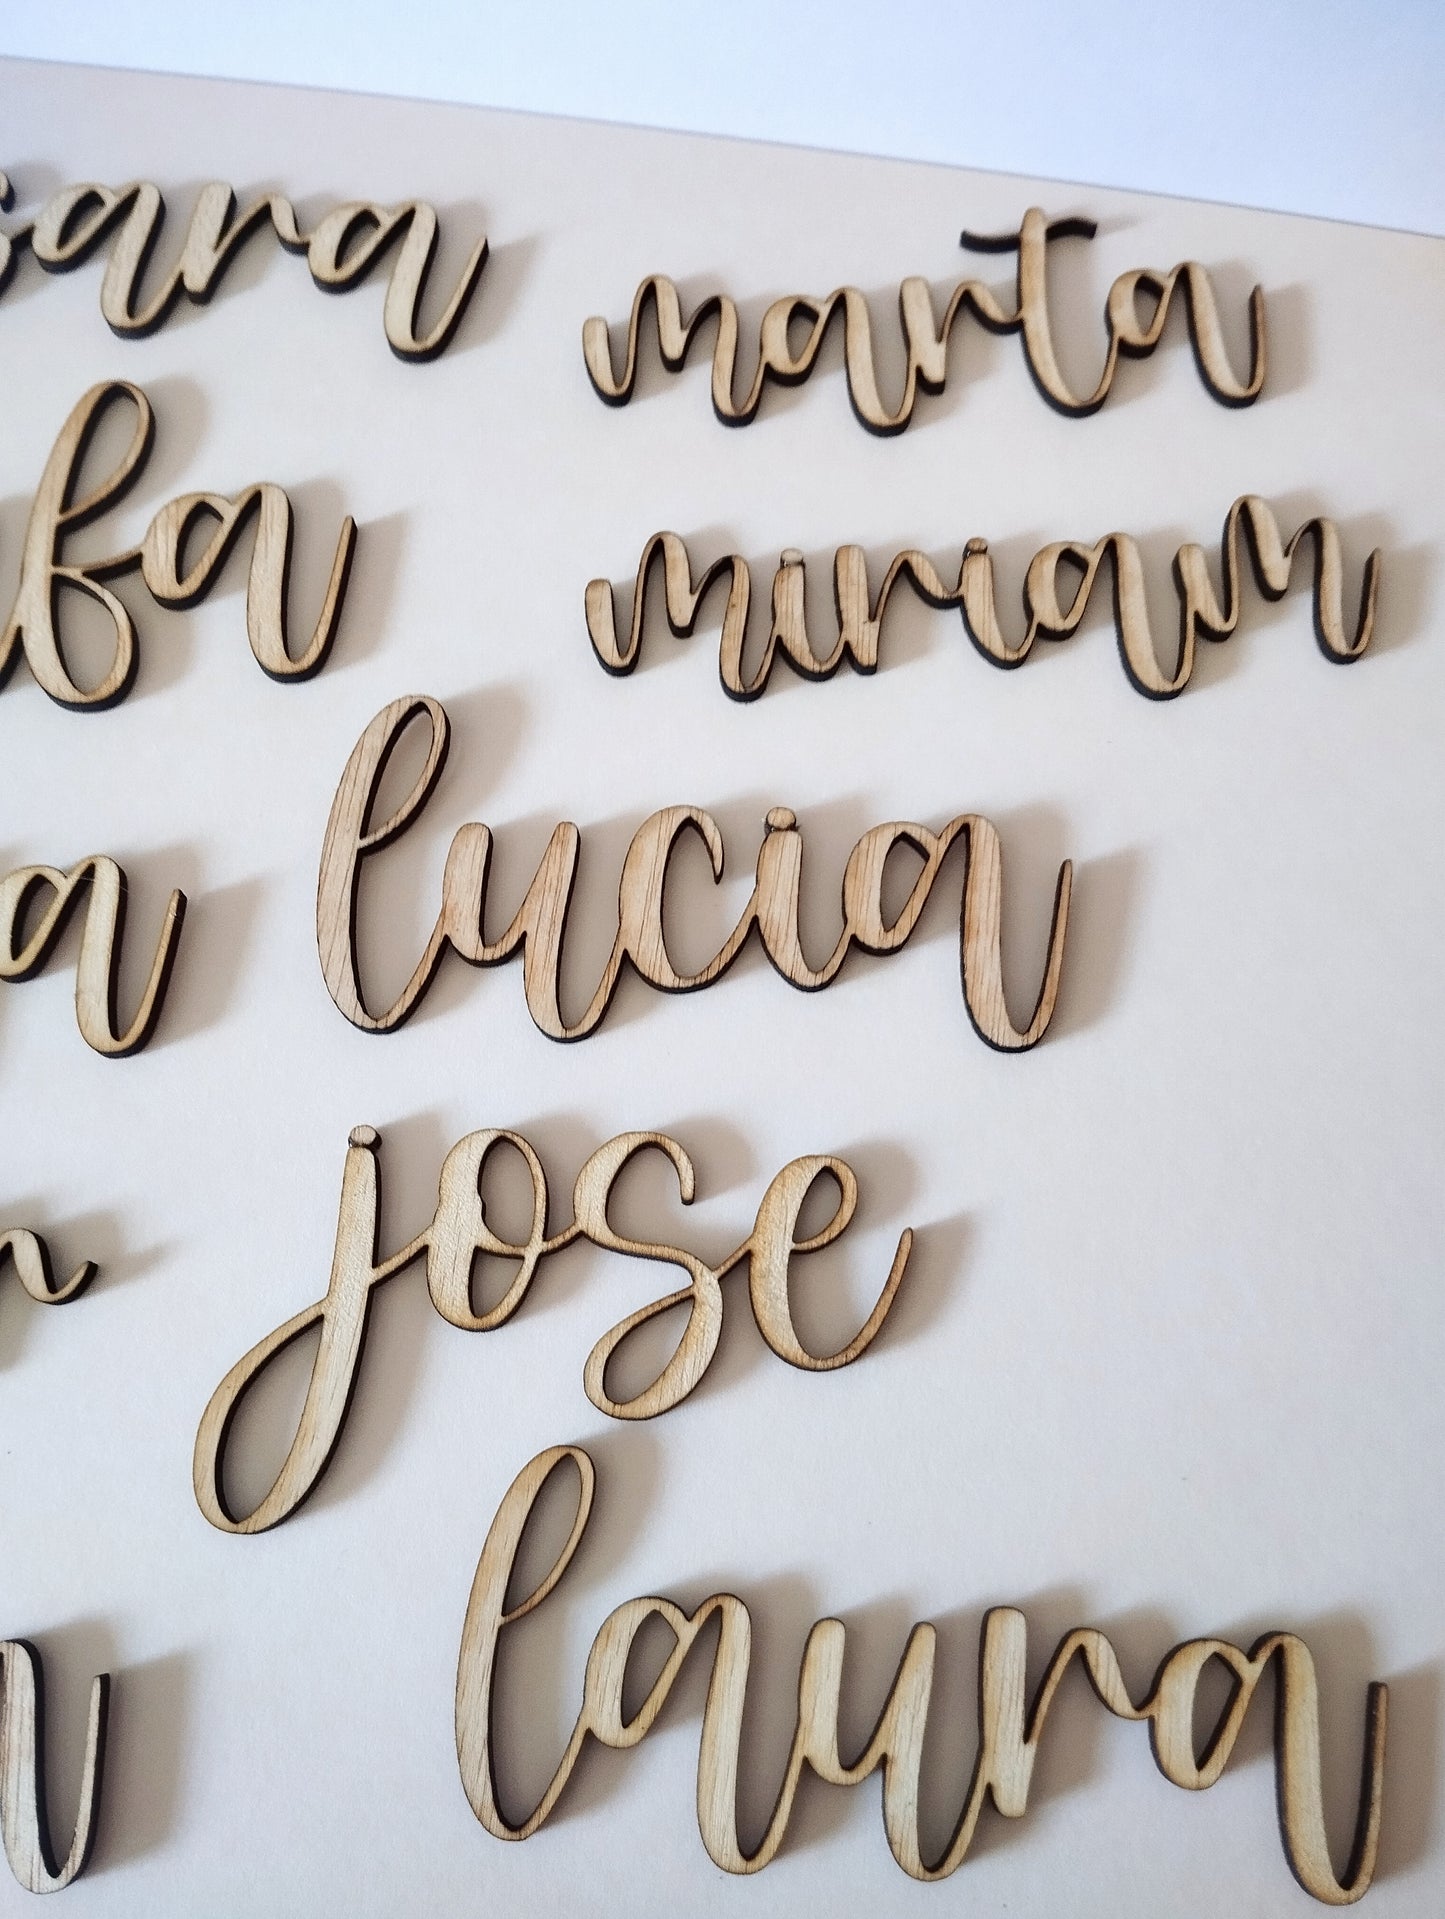 sara marta
miriam
lucia
jose
laura